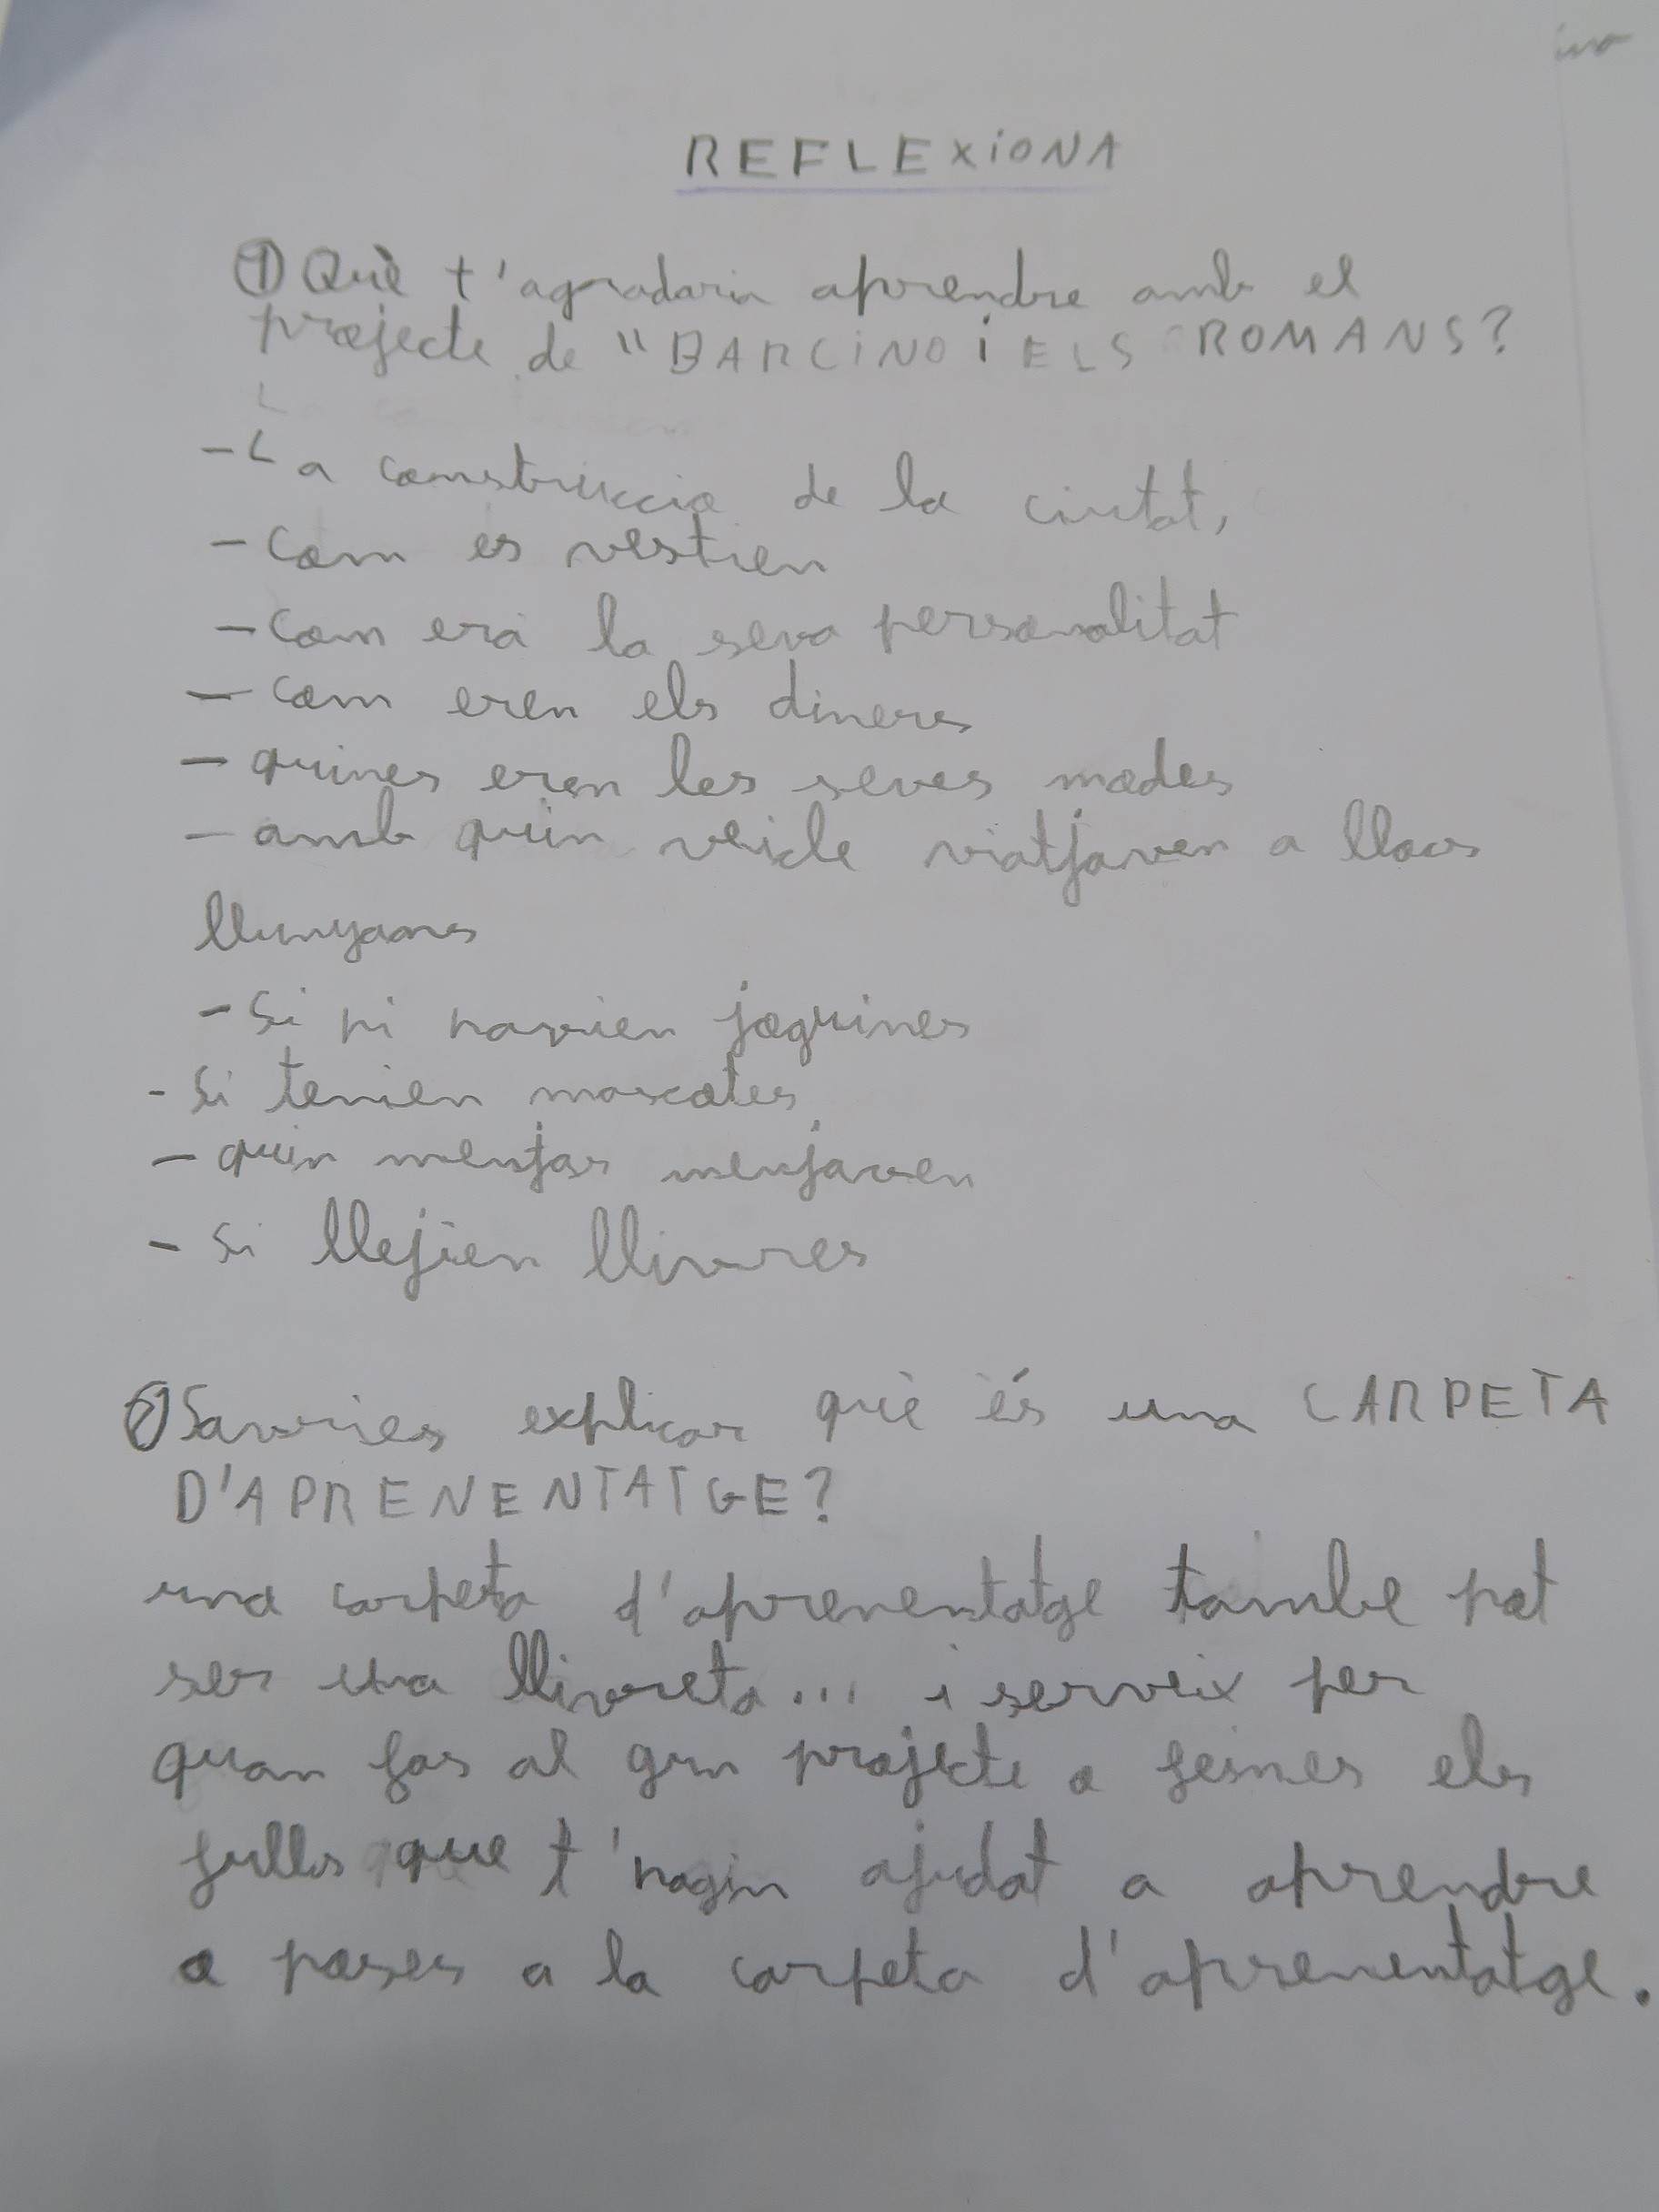 REFLEXiONA
① Què t'agradaria aprendre amb el
projecte de "BARCiNO i ELS ROMANS?
- La construccio de la ciutat,
- Com es vestien
- Com era la seva personalitat
- com eren els diners
- quines eren les seves modes
- amb quin veicle viatjaven a llocs
llunyans
- Si hi havien joguines
- Si tenien mascotes
- quin menjar menjaven
- Si llejien llivres
② Savries explicar què és una CARPETA
D'APRENENTATGE?
una carpeta d'aprenentatge tambe pot
ser una llivreta... i serveix per
quan fas al gun projecte o feines els
fulls que t'hagin ajudat a aprendre
o poses a la carpeta d'aprenentatge.